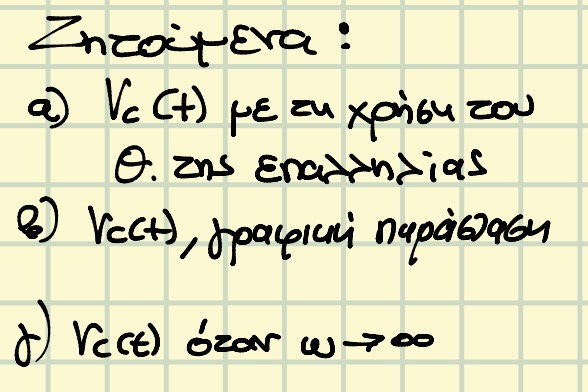 Ζητούμενα:
α) Vc(t) με τη χρήση του
Θ. της επαλληλίας
β) Vc(t), γραφική παράσταση
γ) Vc(t) όταν ω→∞